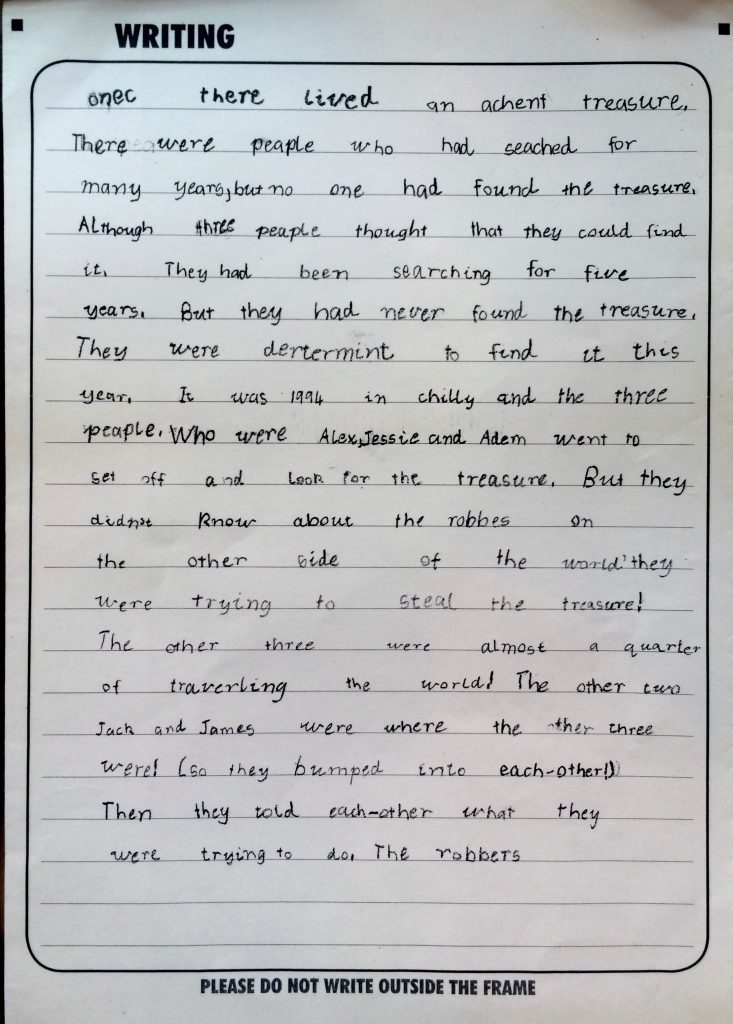 WRITING
onec there lived an achent treasure.
There were peaple who had seached for
many years, but no one had found the treasure.
Although three peaple thought that they could find
it. They had been searching for five
years. But they had never found the treasure.
They were dertermint to find it this
year. It was 1994 in chilly and the three
peaple. Who were Alex, Jessie and Adem went to
set off and look for the treasure. But they
didnot know about the robbes on
the other side of the world' they
were trying to steal the treasure!
The other three were almost a quarter
of traverling the world! The other two
Jack and James were where the other three
were! (so they bumped into each-other!))
Then they told each-other what they
were trying to do. The robbers
PLEASE DO NOT WRITE OUTSIDE THE FRAME